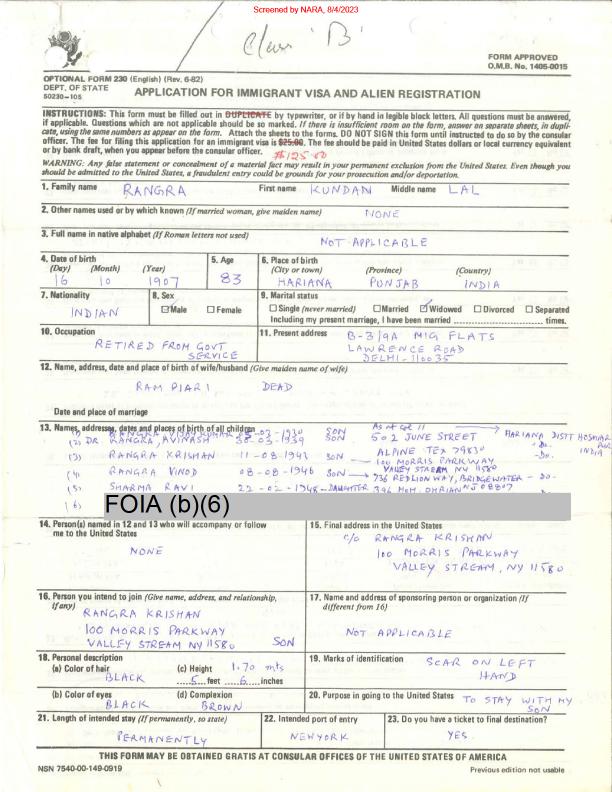 Screened by NARA, 8/4/2023
Class 'B'
FORM APPROVED
O.M.B. No. 1405-0015
OPTIONAL FORM 230 (English) (Rev. 6-82)
DEPT. OF STATE
50230-105
APPLICATION FOR IMMIGRANT VISA AND ALIEN REGISTRATION
INSTRUCTIONS: This form must be filled out in DUPLICATE by typewriter, or if by hand in legible block letters. All questions must be answered,
if applicable. Questions which are not applicable should be so marked. If there is insufficient room on the form, answer on separate sheets, in dupli-
cate, using the same numbers as appear on the form. Attach the sheets to the forms. DO NOT SIGN this form until instructed to do so by the consular
officer. The fee for filing this application for an immigrant visa is $25.00. The fee should be paid in United States dollars or local currency equivalent
or by bank draft, when you appear before the consular officer.
$125.00
WARNING: Any false statement or concealment of a material fact may result in your permanent exclusion from the United States. Even though you
should be admitted to the United States, a fraudulent entry could be grounds for your prosecution and/or deportation.
1. Family name RANGRA First name KUNDAN Middle name LAL
2. Other names used or by which known (If married woman, give maiden name) NONE
3. Full name in native alphabet (If Roman letters not used) NOT APPLICABLE
4. Date of birth
(Day) (Month) (Year)
16 10 1907
5. Age
83
6. Place of birth
(City or town) (Province) (Country)
HARIANA PUNJAB INDIA
7. Nationality
INDIAN
8. Sex
Male Female
9. Marital status
Single (never married) Married Widowed Divorced Separated
Including my present marriage, I have been married times.
10. Occupation
RETIRED FROM GOVT
SERVICE
11. Present address B-3/9A MIG FLATS
LAWRENCE ROAD
DELHI-110035
12. Name, address, date and place of birth of wife/husband (Give maiden name of wife)
RAM PIARI DEAD
Date and place of marriage
13. Names, addresses, dates and places of birth of all children
(1) RANGRA KUMAR -03-1930 SON As at Col 11 HARIANA DISTT HOSHIAR PUR INDIA
(2) DR RANGRA AVINASH 30-03-1939 SON 502 JUNE STREET -Do.
ALPINE TEX 79830
(3) RANGRA KRISHAN 11-08-1943 SON 100 MORRIS PARKWAY -Do.
VALLEY STREAM NY 11580
(4) RANGRA VINOD 08-08-1946 SON 936 REDLION WAY, BRIDGEWATER - Do.
NJ 08807
(5) SHARMA RAVI 22-02-1948-DAUGHTER 396
(6)
FOIA (b)(6)
14. Person(s) named in 12 and 13 who will accompany or follow
me to the United States
NONE
15. Final address in the United States
C/o RANGRA KRISHAN
100 MORRIS PARKWAY
VALLEY STREAM, NY 11580
16. Person you intend to join (Give name, address, and relationship,
if any)
RANGRA KRISHAN
100 MORRIS PARKWAY
VALLEY STREAM NY 11580 SON
17. Name and address of sponsoring person or organization (If
different from 16)
NOT APPLICABLE
18. Personal description
(a) Color of hair
BLACK
(c) Height 1.70 mts
5 feet 6 inches
(b) Color of eyes
BLACK
(d) Complexion
BROWN
19. Marks of identification SCAR ON LEFT
HAND
20. Purpose in going to the United States TO STAY WITH MY
SON
21. Length of intended stay (If permanently, so state)
PERMANENTLY
22. Intended port of entry
NEWYORK
23. Do you have a ticket to final destination?
YES.
THIS FORM MAY BE OBTAINED GRATIS AT CONSULAR OFFICES OF THE UNITED STATES OF AMERICA
NSN 7540-00-149-0919
Previous edition not usable